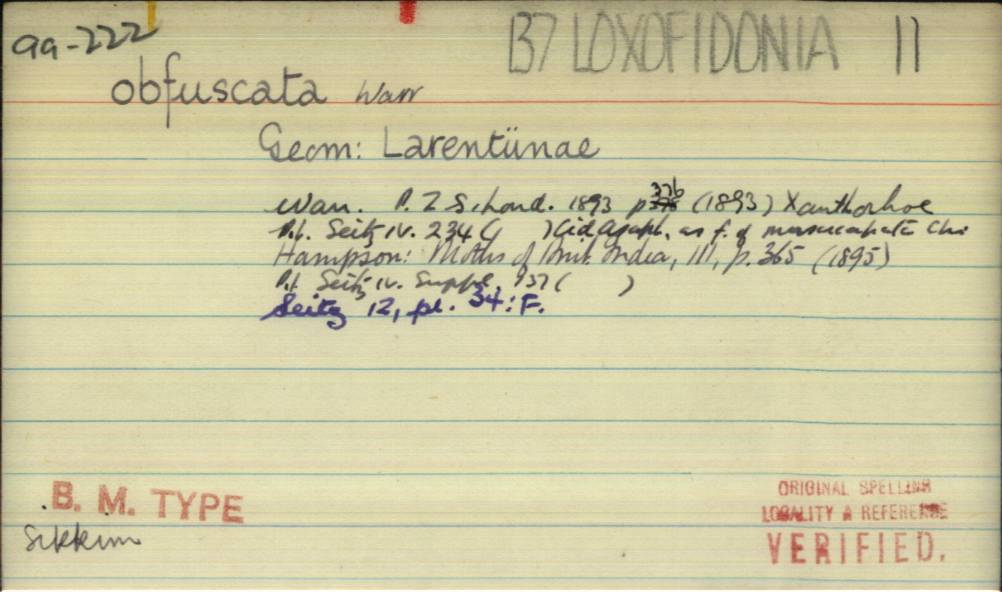 99-222
B7 LOXOFIDONIA 11
obfuscata Warr
Geom: Larentiinae
Warr. P. Z. S. Lond. 1893 p 376 (1893) Xanthorhoe
Pt. Seitz IV. 234 ( ) as f. of
Hampson: Moths of Brit. India, III, p. 365 (1895)
Pt. Seitz IV. Suppl. 937 ( )
Seitz 12, pl. 34: F.
B. M. TYPE
Sikkim
ORIGINAL SPELLING
LOCALITY & REFERENCE
VERIFIED.